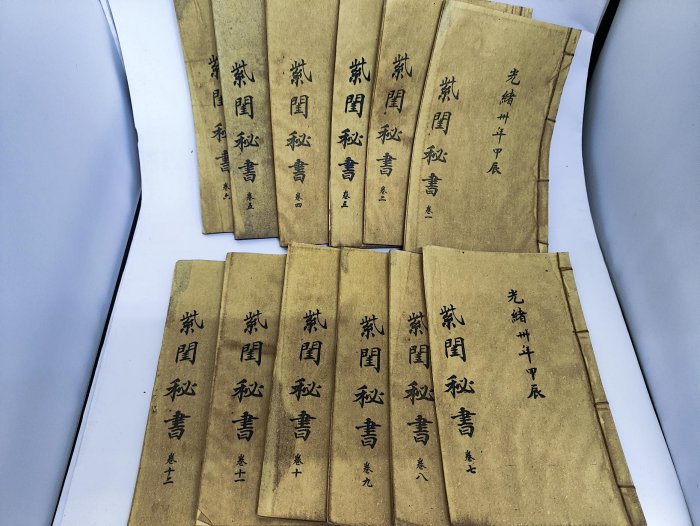 光緒卅年甲辰
紫閨秘書 卷一
紫閨秘書 卷二
紫閨秘書 卷三
紫閨秘書 卷四
紫閨秘書 卷五
紫閨秘書 卷六
光緒卅年甲辰
紫閨秘書 卷七
紫閨秘書 卷八
紫閨秘書 卷九
紫閨秘書 卷十
紫閨秘書 卷十一
紫閨秘書 卷十二